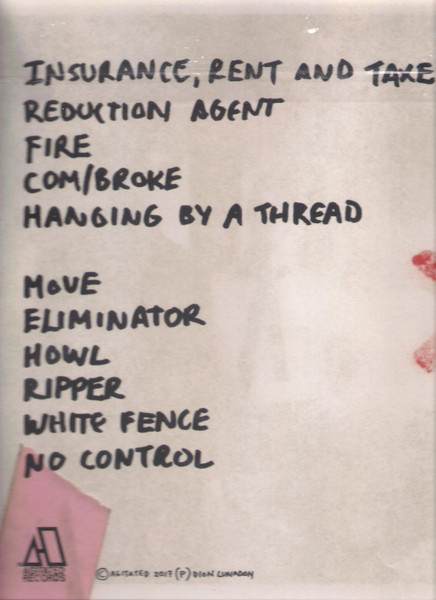 INSURANCE, RENT AND TAXE
REDUCTION AGENT
FIRE
COM/BROKE
HANGING BY A THREAD
MOVE
ELIMINATOR
HOWL
RIPPER
WHITE FENCE
NO CONTROL
AGITATED
RECORDS
© AGITATED 2017 (P) DION LUNADON